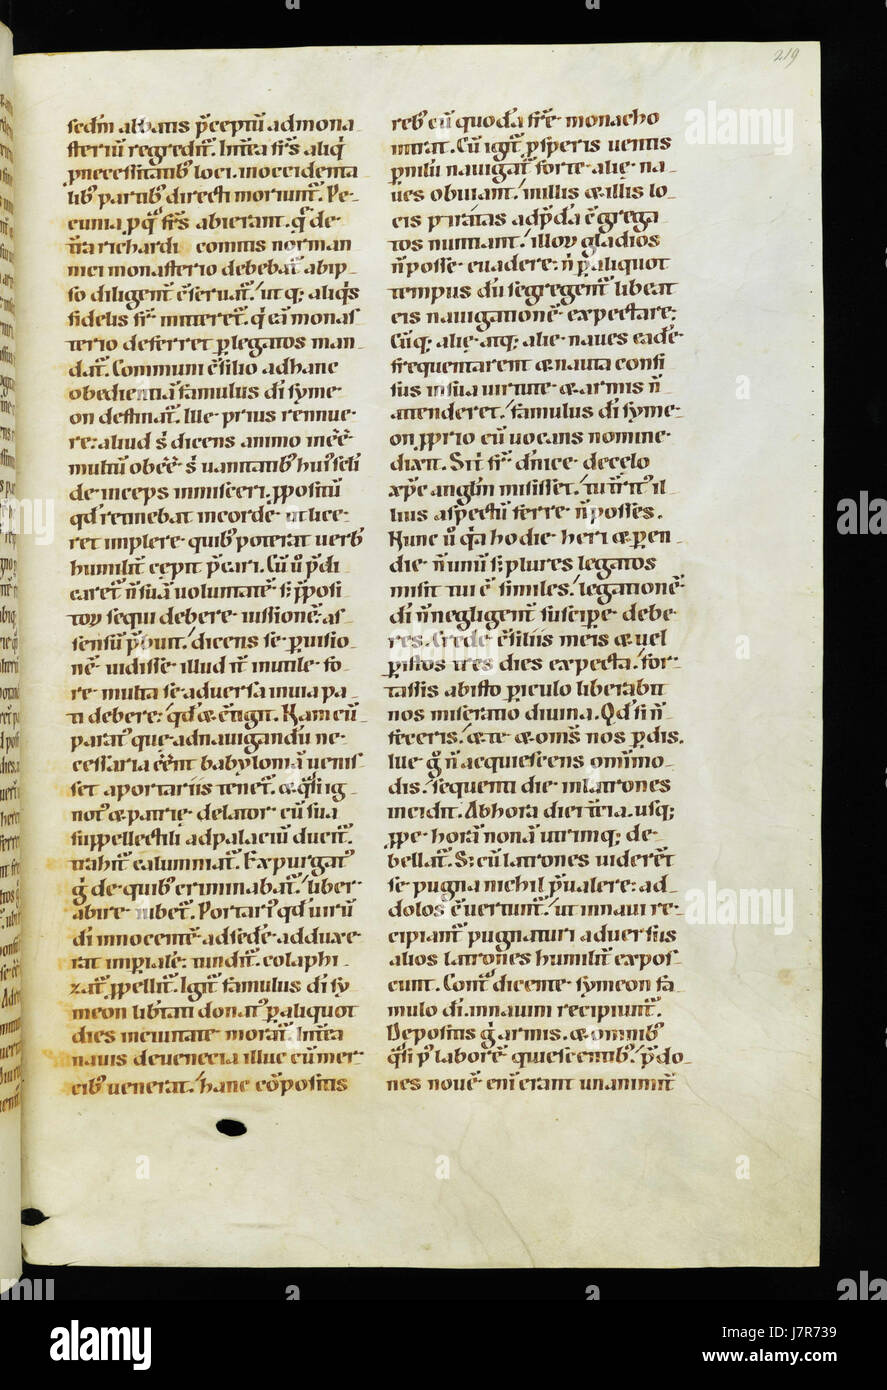 219
sedm̄ abbatis p̄ceptū ad mona
steriū regredit̄. Int̄ea fr̄s aliq̄
p necessitatib; loci. in occidenta
lib; partib; directi moriunt̄. Pe
cunia p qͣ fr̄s abierant. q̄ de
t̄ra richardi comitis norman
nici monasterio debebat̄ ab ip
so diligent̄ c̄seruat̄. ut q; aliq̄s
fidelis fr̄ mitteret̄. q̄ eā monas
terio deferret p legatos man
dat̄. Communi c̄silio ad hanc
obedientiā famulus dī syme
on destinat̄. Ille prius rennue
re: aliud s̄ dicens animo inc̄e
multū obc̄e s̄ uanitatib; hui; sc̄li
deinceps inmisceri. p̱positū
qd̄ rennebat in corde ut lice
ret implere quib; poterat uerb
humilit̄ cepit p̄cari. Cū u̇ p̄di
caret̄ n̄ suā uoluntatē s; p̱posi
toꝝ sequi debere iussionē: as
sensū p̄buit. dicens se p uisio
nē uidisse illud it̄ inutile fo
re multa se aduersa in uia pa
ti debere: qd̄ & c̄tigit. Nam cū
parat; quę ad nauigandū ne
cessaria c̄ent babyloniā uenis
set a portariis tenet̄. & q̄si ig
not; & patrię delator cū sua
suppellectili ad palaciū ducit̄.
trahit̄ calumniat̄. Expurgat;
g̊ de quib; criminabat̄. liber
abire iubet̄. Portari; qd̄ uirū
dī innocentē ad sedē adduxe
rat imp̱ialē: tundit̄. colaphi
zat̄. p̱pellit̄. Igit̄ famulus dī sy
meon lib̄tati donat; p aliquot
dies in ciuitate morat̄. Int̄ea
nauis de uenecia illuc cū mer
cib; uenerat. hanc cōpositis
reb; cū quodā fr̄e monacho
intrat. Cū igit̄ p̱speris uentis
p niliū nauigat̄ forte alię na
ues obuiant. in illis & illis lo
cis piratas ad p̄dā c̄grega
tos nuntiant. illoꝝ gladios
n̄ posse euadere: n̄ p aliquot
tempus dū segregent̄ libeat
eis nauigationē expectare;
Cūq; alię atq; alię naues eadē
frequentarent & nauta confi
sus in sua uirtute & armis n̄
attenderet. famulus dī syme
on p̱prio eū uocans nomine
dixit. Sit̄ fr̄ dn̄ice de celo
xp̄c angl̄m misisset. tu n̄ in il
lius aspectū ferre n̄ posses.
Nunc u̇ qa hodie heri & pen
die n̄ unū s; plures legatos
misit tui c̄similes. legationē
dī n̄ negligent̄ suscipe debe
res. Crede c̄siliis meis & uel
p istos tres dies expecta. for
tassis ab isto p̱iculo liberabit
nos miseratio diuina. Qd̄ si n̄
feceris. & te & om̄s nos p̱dis.
Ille g̊ n̄ acquiescens omnimo
dis. sequenti die in latrones
incidit. Ab hora diei t̄cia. usq;
p̱pe horā nonā utrimq; de
bellat̄. S; cū latrones uiderēt
se pugna nichil p̄ualere: ad
dolos c̄uertunt̄. ut in naui re
cipiant̄ pugnaturi aduersus
alios latrones humilit̄ expos
cunt. Cont̄ dicente symeon fa
mulo dī. in nauim recipiunt̄.
Depositis g̊ armis. & omnib;
q̄si p̱ labore quiescentib;. p̄do
nes nouē eni erant unanimit̄